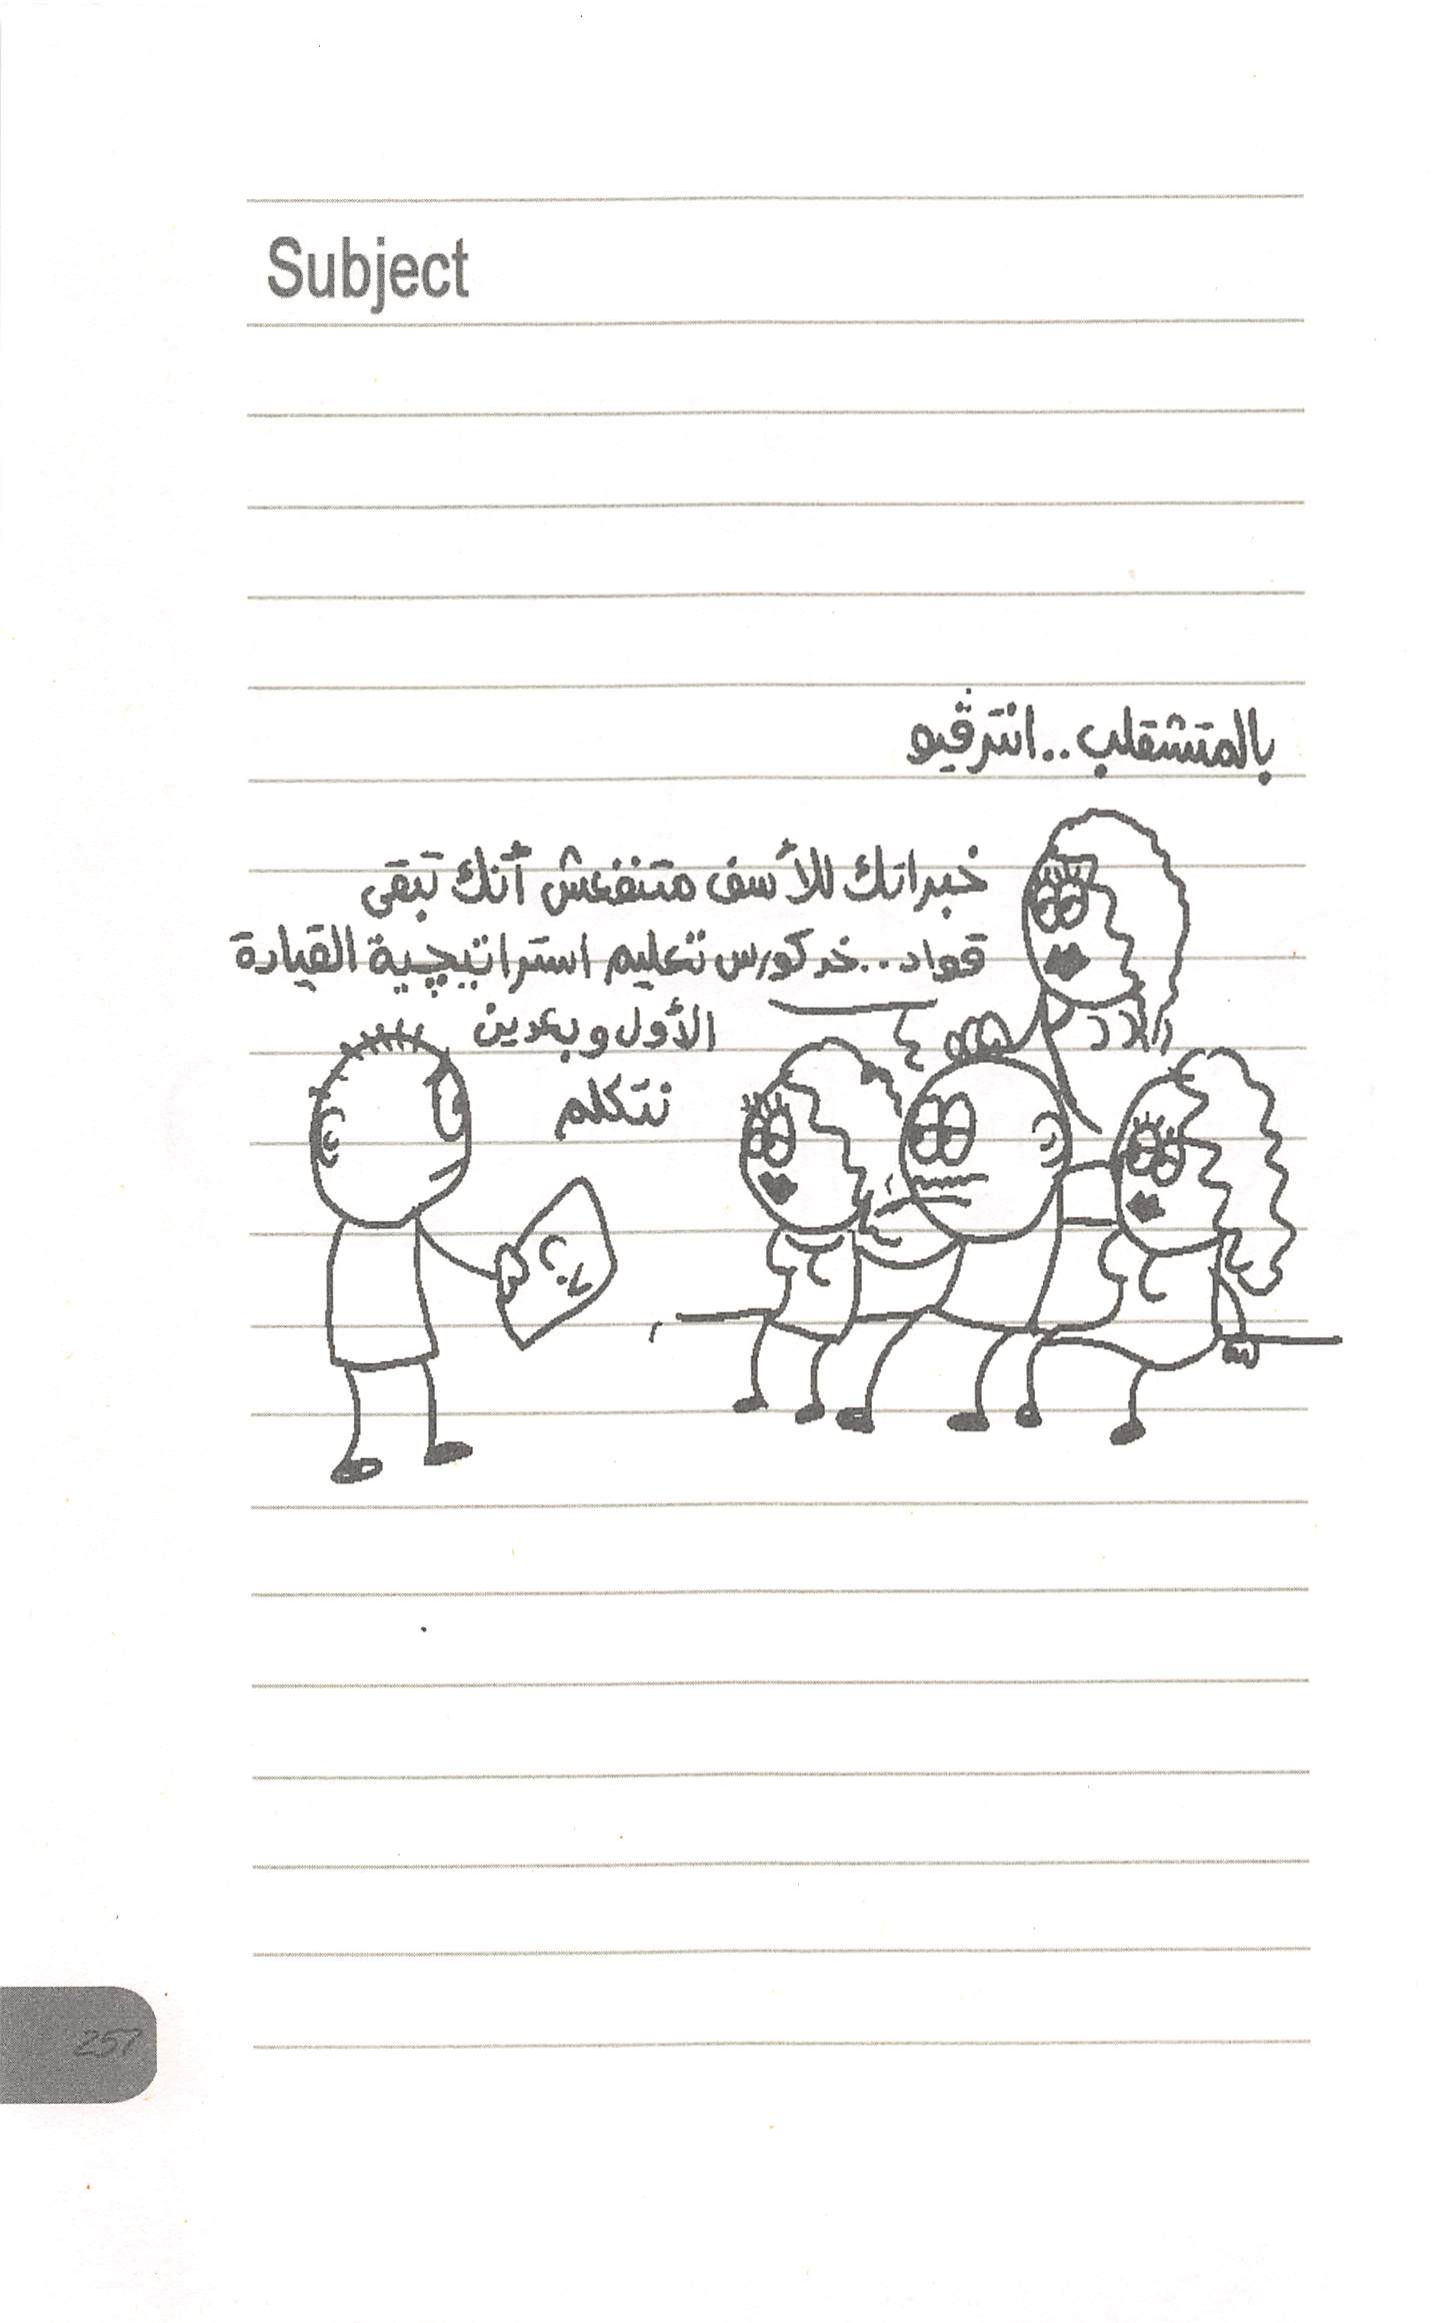 Subject
بالمتشقلب..انترڤيو
خبراتك للأسف متنفعش أنك تبقى
قواد..خد كورس تعليم استراتيچية القيادة
الأول وبعدين
نتكلم
C.V
257